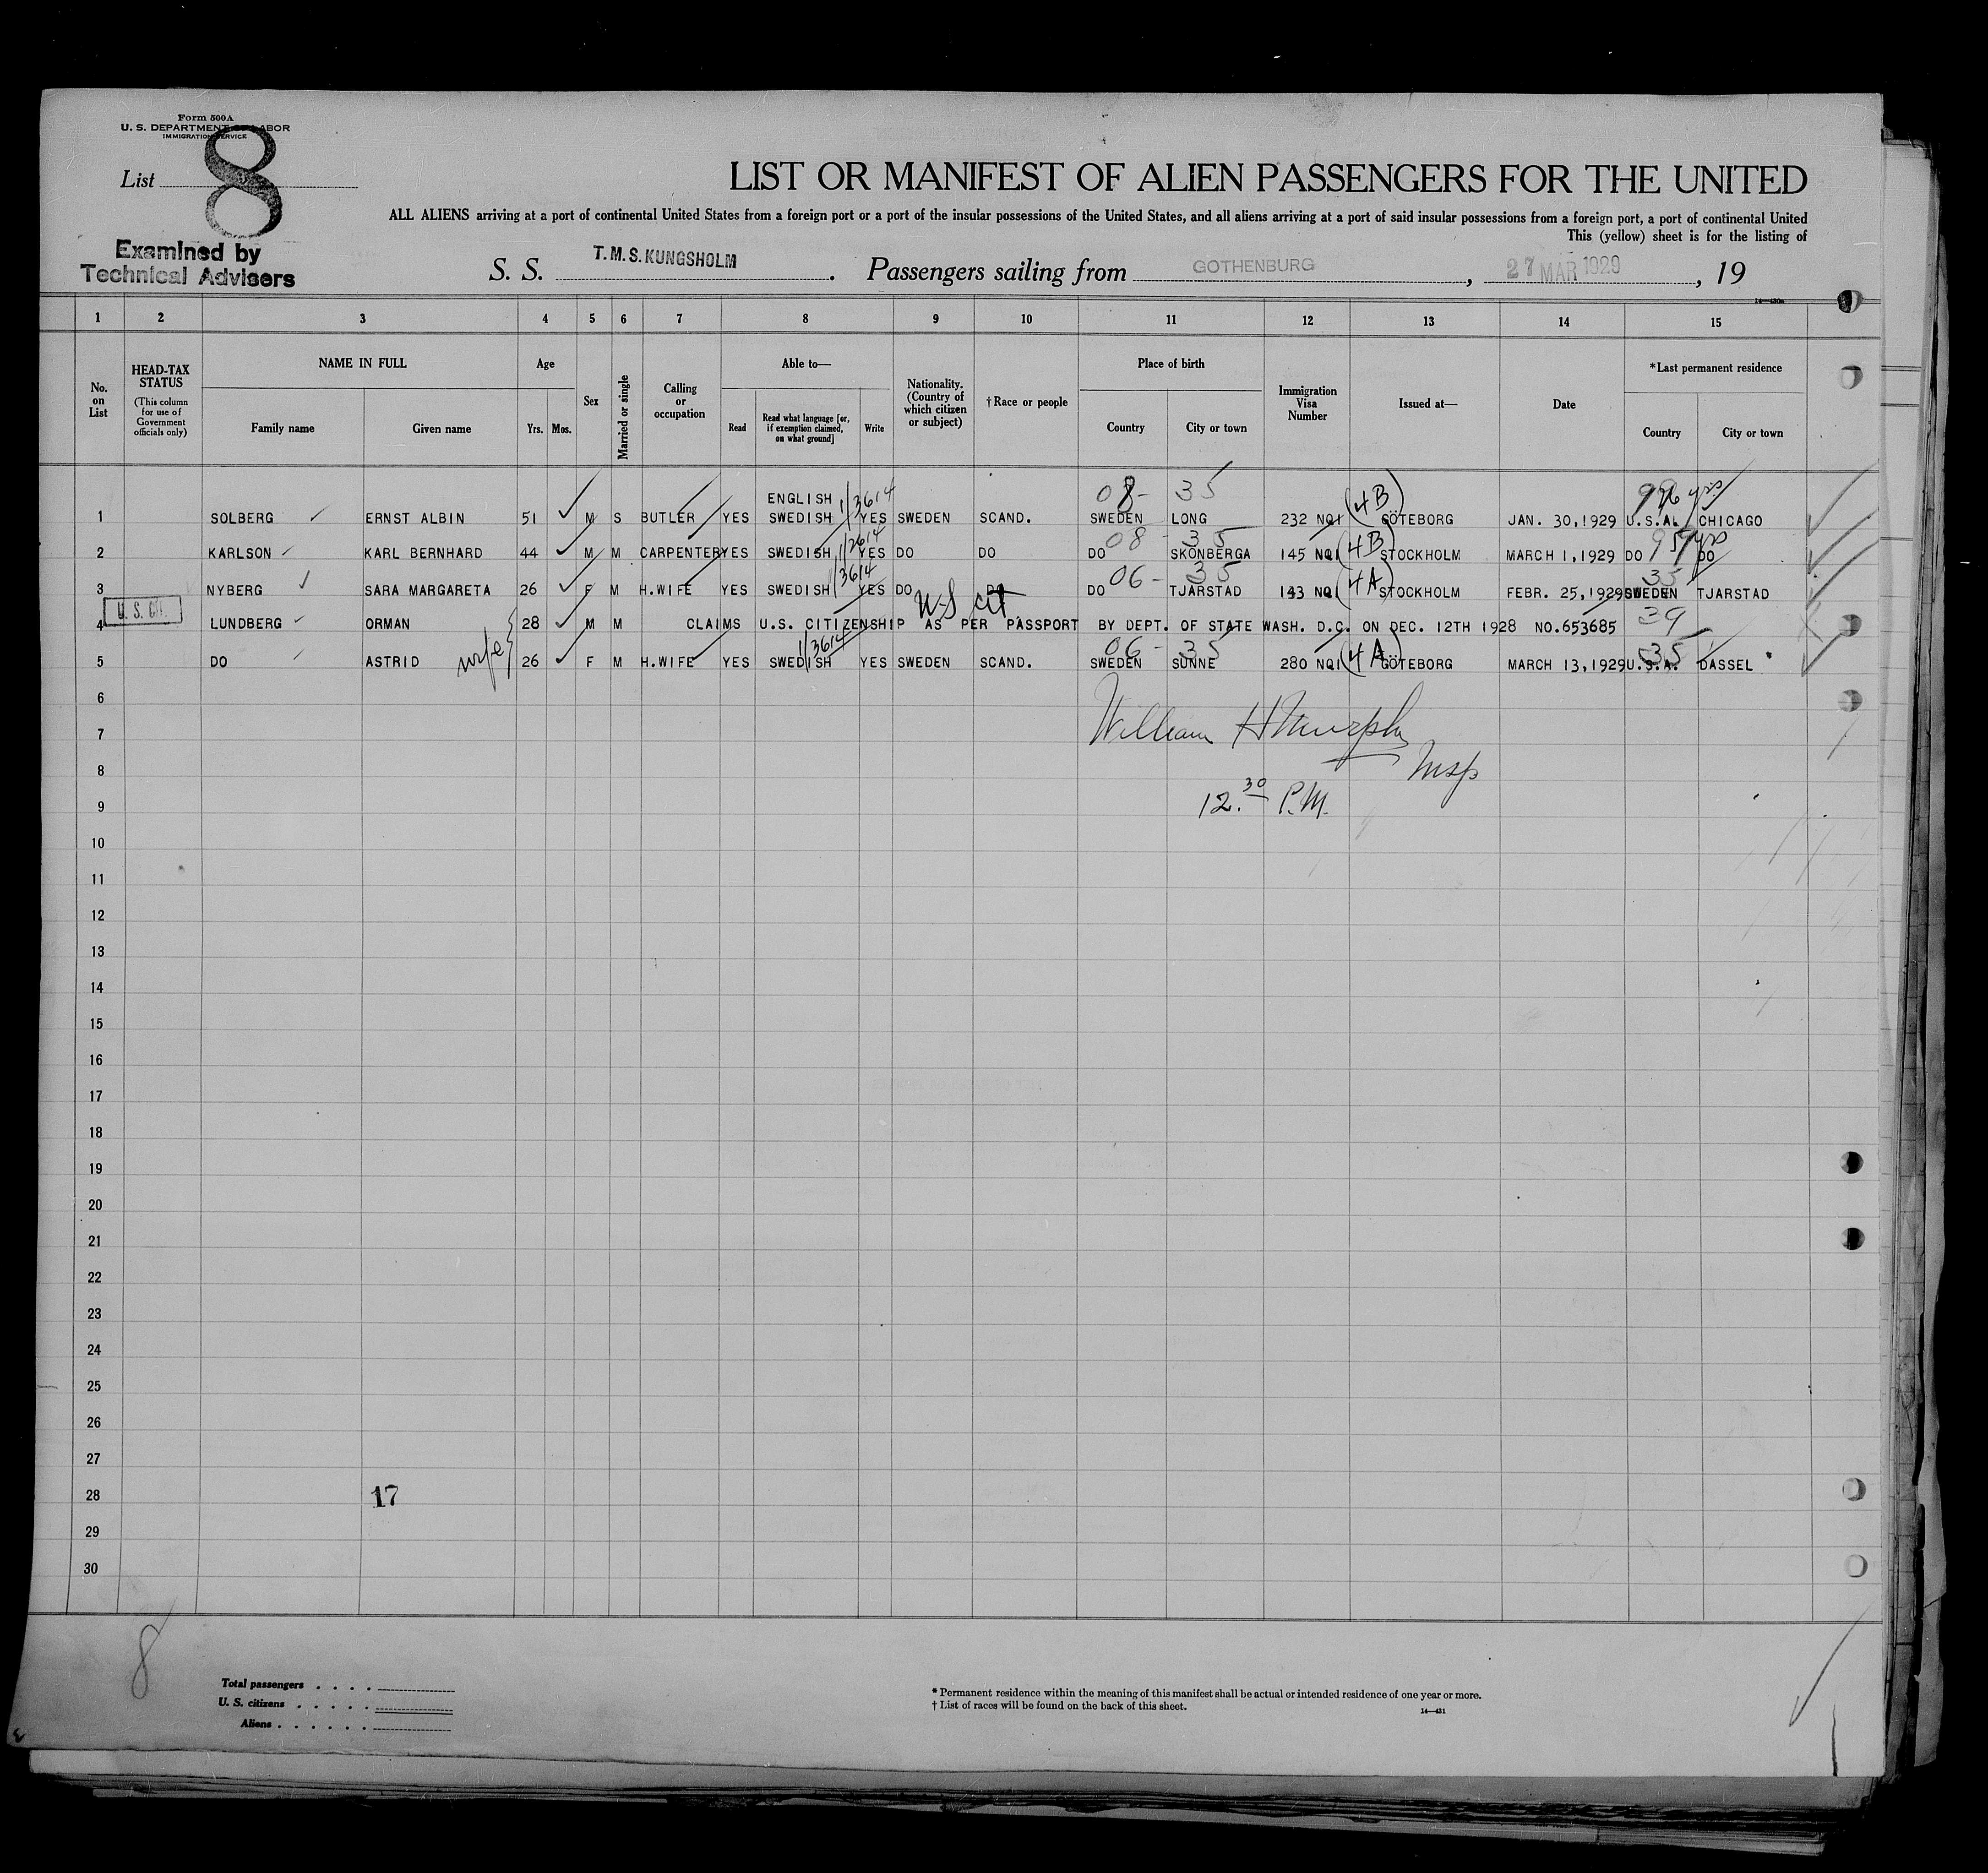 Form 500A
U. S. DEPARTMENT OF LABOR
IMMIGRATION SERVICE
List 8
LIST OR MANIFEST OF ALIEN PASSENGERS FOR THE UNITED
ALL ALIENS arriving at a port of continental United States from a foreign port or a port of the insular possessions of the United States, and all aliens arriving at a port of said insular possessions from a foreign port, a port of continental United
This (yellow) sheet is for the listing of
Examined by
Technical Advisers
S. S. T.M.S. KUNGSHOLM . Passengers sailing from GOTHENBURG , 27 MAR 1929 , 19
1 2 3 4 5 6 7 8 9 10 11 12 13 14 15
No. on List
HEAD-TAX STATUS
(This column for use of Government officials only)
NAME IN FULL
Family name Given name
Age
Yrs. Mos.
Sex
Married or single
Calling or occupation
Able to—
Read
Read what language [or, if exemption claimed, on what ground]
Write
Nationality. (Country of which citizen or subject)
†Race or people
Place of birth
Country City or town
Immigration Visa Number
Issued at—
Date
*Last permanent residence
Country City or town
08- 35
1 SOLBERG ERNST ALBIN 51 M S BUTLER YES ENGLISH SWEDISH 1/3614 YES SWEDEN SCAND. SWEDEN LONG 232 NQI (4B) GÖTEBORG JAN. 30,1929 U.S.A. CHICAGO
2 KARLSON KARL BERNHARD 44 M M CARPENTER YES SWEDISH YES DO DO DO 08- 35 SKÖNBERGA 145 NQI (4B) STOCKHOLM MARCH 1,1929 DO DO
3 NYBERG SARA MARGARETA 26 F M H.WIFE YES SWEDISH 3614 YES DO DO DO 06- 35 TJARSTAD 143 NQI (4A) STOCKHOLM FEBR. 25,1929 SWEDEN 35 TJARSTAD
U.S. Cit.
U-S cit
4 LUNDBERG ORMAN 28 M M CLAIMS U.S. CITIZENSHIP AS PER PASSPORT BY DEPT. OF STATE WASH. D.C. ON DEC. 12TH 1928 NO.653685 39
5 DO ASTRID wife 26 F M H.WIFE YES SWEDISH 1/3614 YES SWEDEN SCAND. SWEDEN 06- 35 SUNNE 280 NQI (4A) GÖTEBORG MARCH 13,1929 U.S.A. 35 DASSEL
6
William H Murphy
7
Insp
8
12.30 P.M.
9
10
11
12
13
14
15
16
17
18
19
20
21
22
23
24
25
26
27
28 17
29
30
8
Total passengers
U. S. citizens
Aliens
* Permanent residence within the meaning of this manifest shall be actual or intended residence of one year or more.
† List of races will be found on the back of this sheet.
14—431